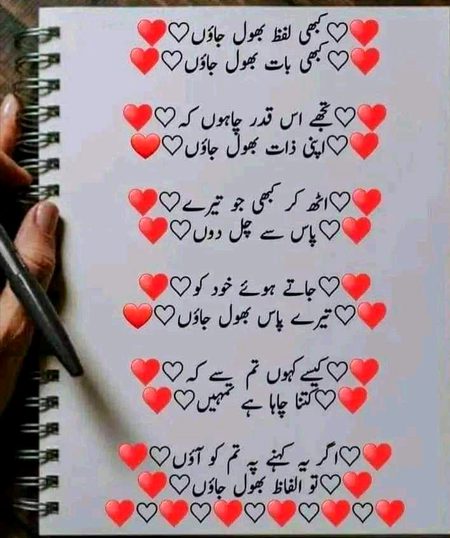 ❤️♡کبھی لفظ بھول جاؤں♡❤️
❤️♡کبھی بات بھول جاؤں♡❤️
❤️♡تجھے اس قدر چاہوں کہ♡❤️
❤️♡اپنی ذات بھول جاؤں♡❤️
❤️♡اٹھ کر کبھی جو تیرے♡❤️
❤️♡پاس سے چل دوں♡❤️
❤️♡جاتے ہوئے خود کو♡❤️
❤️♡تیرے پاس بھول جاؤں♡❤️
❤️♡کیسے کہوں تم سے کہ♡❤️
❤️♡کتنا چاہا ہے تمہیں♡❤️
❤️♡اگر یہ کہنے پہ تم کو آؤں♡❤️
❤️♡تو الفاظ بھول جاؤں♡❤️
❤️♡❤️♡❤️♡❤️♡❤️♡❤️